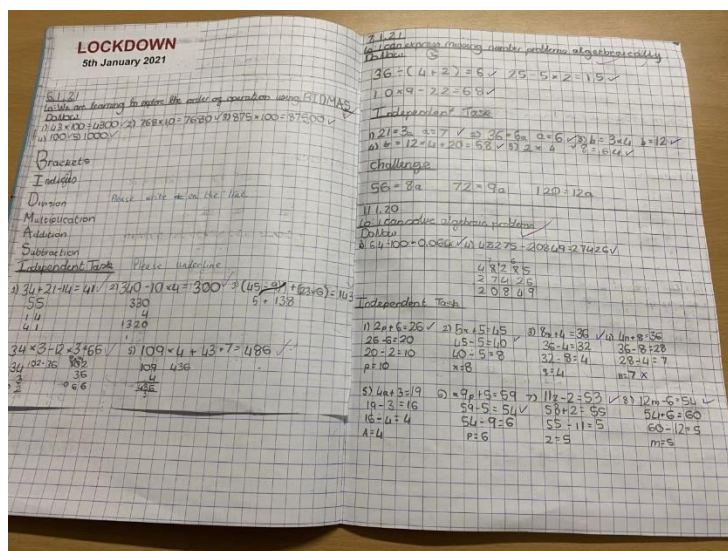 LOCKDOWN
5th January 2021
5.1.21
Lo: We are learning to explore the order of operation using BIDMAS
Do Now
1) 43×100=4300 2) 768×10=7680 3) 875×100=87500
4) 100 5) 1000
Brackets
Indices
Division Please write on the line
Multiplication
Addition
Subtraction
Independent Task Please underline
1) 34+21-14=41 2) 340-10×4=300 3) (45÷9)+(23×6)=143
55 330 5+138
14 4
41 1320
34×3-12×3=66 5) 109×4+43+7=486
34 102-36 102 109 436
3 36 4
66 436
7.1.21
Lo: I can express missing number problems algebraically
Do Now
36÷(4+2)=6 25-5×2=15
10×9-22=68
Independent Task
1) 21=3a a=7 2) 36=6a a=6 3) b=3×4 b=12
Challenge
56=8a 72=9a 120=12a
11.1.20
Lo: I can solve algebraic problems
Do Now
48275-20849=27426
27426
20849
Independent Task
1) 2p+6=26 2) 5x+5=45 3) 8z+4=36 4) 4n+8=36
26-6=20 45-5=40 36-4=32 36-8=28
20÷2=10 40÷5=8 32÷8=4 28÷4=7
p=10 x=8 z=4 n=7
5) 4a+3=19 6) 9p+5=59 7) 11z-2=53 8) 12m-6=54
19-3=16 59-5=54 53+2=55 54+6=60
16÷4=4 54÷9=6 55÷11=5 60÷12=5
A=4 p=6 z=5 m=5